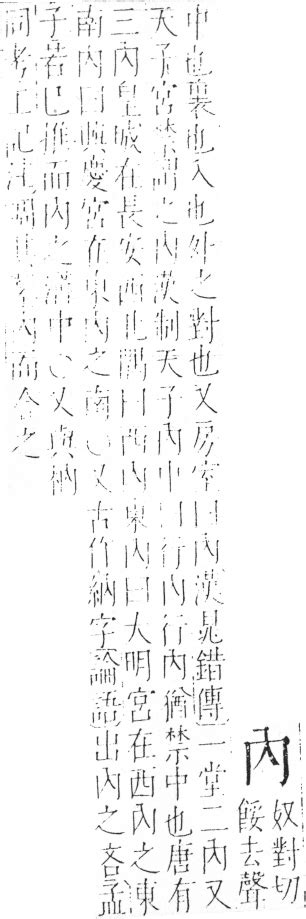 內
奴對切
餒去聲
中也裏也入也外之對也又房室曰內漢鼂錯傳一堂二內又
天子宮禁謂之內漢制天子內中曰行內行內猶禁中也唐有
三內皇城在長安西北隅曰西內東內曰大明宮在西內之東
南內曰興慶宮在東內之南○又古作納字論語出內之吝孟
子若己推而內之溝中○又與枘
同考工記注調其鑿內而合之